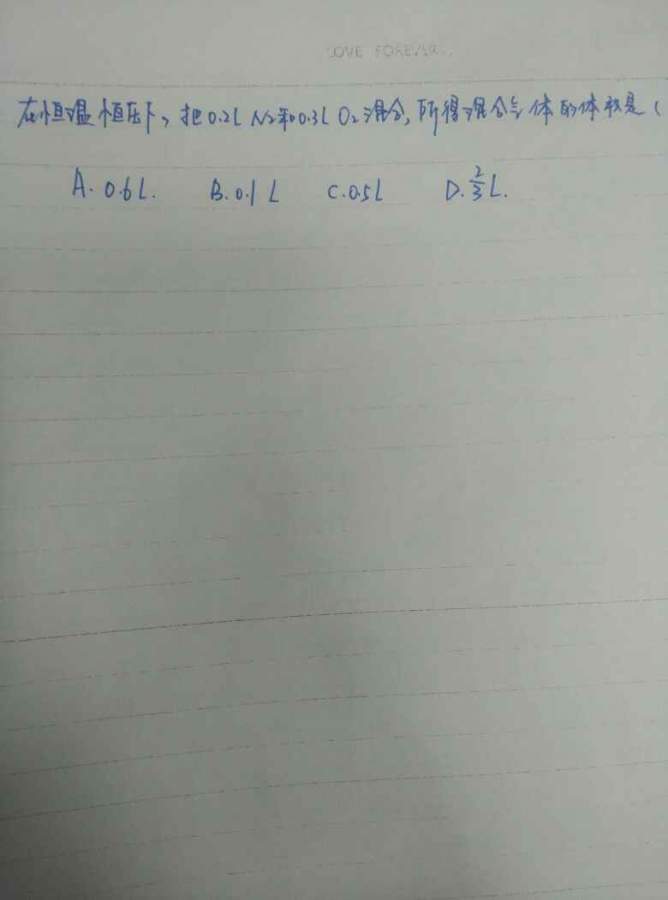 LOVE FOREVER
在恒温恒压下，把0.2L N₂和0.3L O₂混合，所得混合气体的体积是（
A. 0.6L. B. 0.1 L C. 0.5L D. 2/3 L.